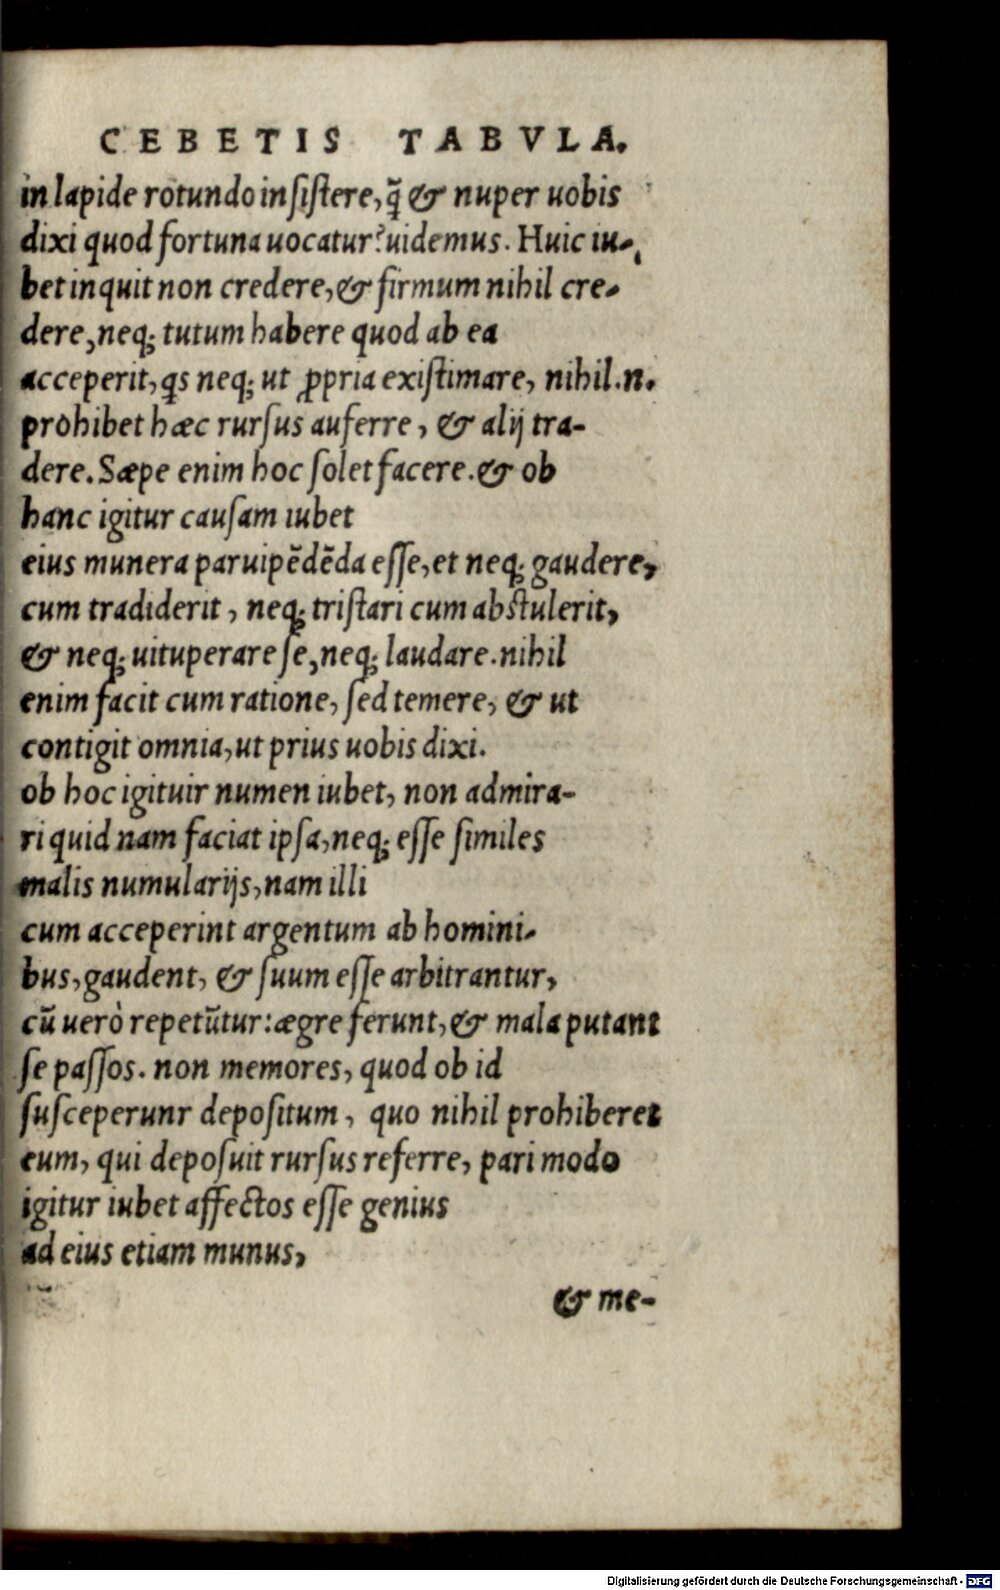 CEBETIS TABVLA.
in lapide rotundo insistere, q̃ & nuper uobis
dixi quod fortuna uocatur? uidemus. Huic iu-
bet inquit non credere, & firmum nihil cre-
dere, neq; tutum habere quod ab ea
acceperit, q̃s neq; ut ꝓpria existimare, nihil .n.
prohibet hæc rursus auferre, & alij tra-
dere. Sæpe enim hoc solet facere. & ob
hanc igitur causam iubet
eius munera paruipẽdẽda esse, et neq; gaudere,
cum tradiderit, neq; tristari cum abstulerit,
& neq; uituperare se, neq; laudare. nihil
enim facit cum ratione, sed temere, & ut
contigit omnia, ut prius uobis dixi.
ob hoc igituir numen iubet, non admira-
ri quid nam faciat ipsa, neq; esse similes
malis numularijs, nam illi
cum acceperint argentum ab homini-
bus, gaudent, & suum esse arbitrantur,
cũ uerò repetũtur: ægre ferunt, & mala putant
se passos. non memores, quod ob id
susceperunr depositum, quo nihil prohiberet
eum, qui deposuit rursus referre, pari modo
igitur iubet affectos esse genius
ad eius etiam munus,
& me-
Digitalisierung gefördert durch die Deutsche Forschungsgemeinschaft - DFG